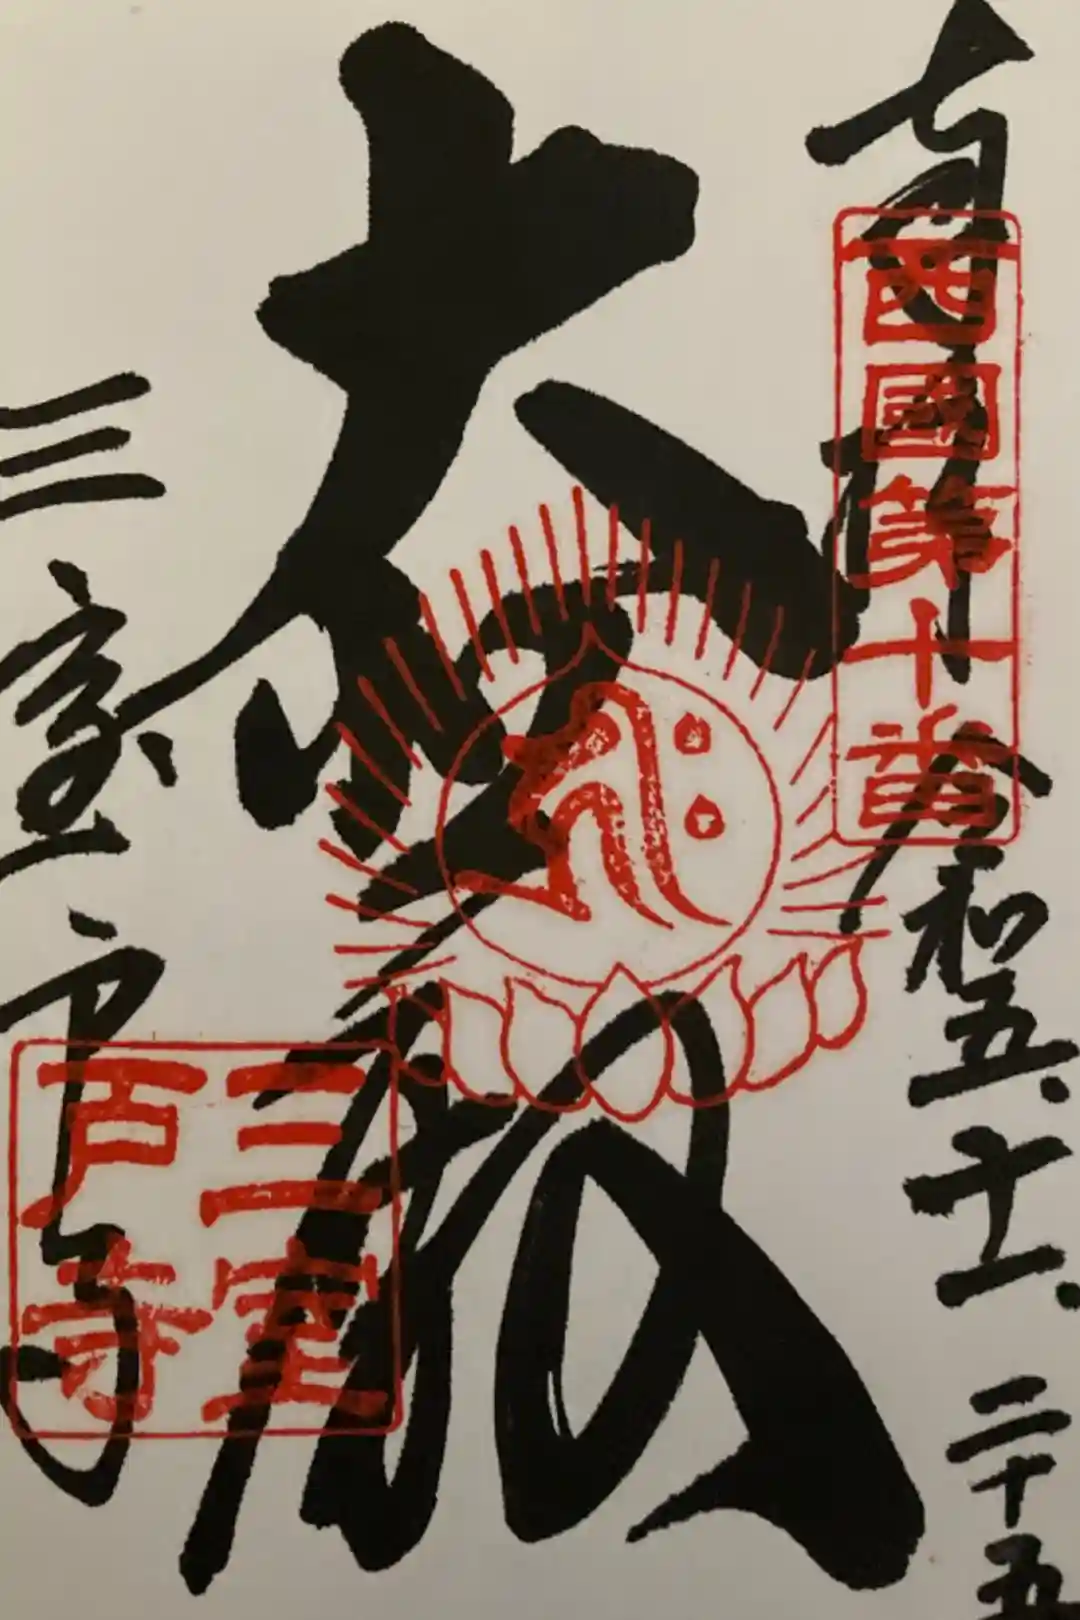 奉拝
西國第十番
令和五、十一、二十五
大悲殿
三室戸寺
三室戸寺